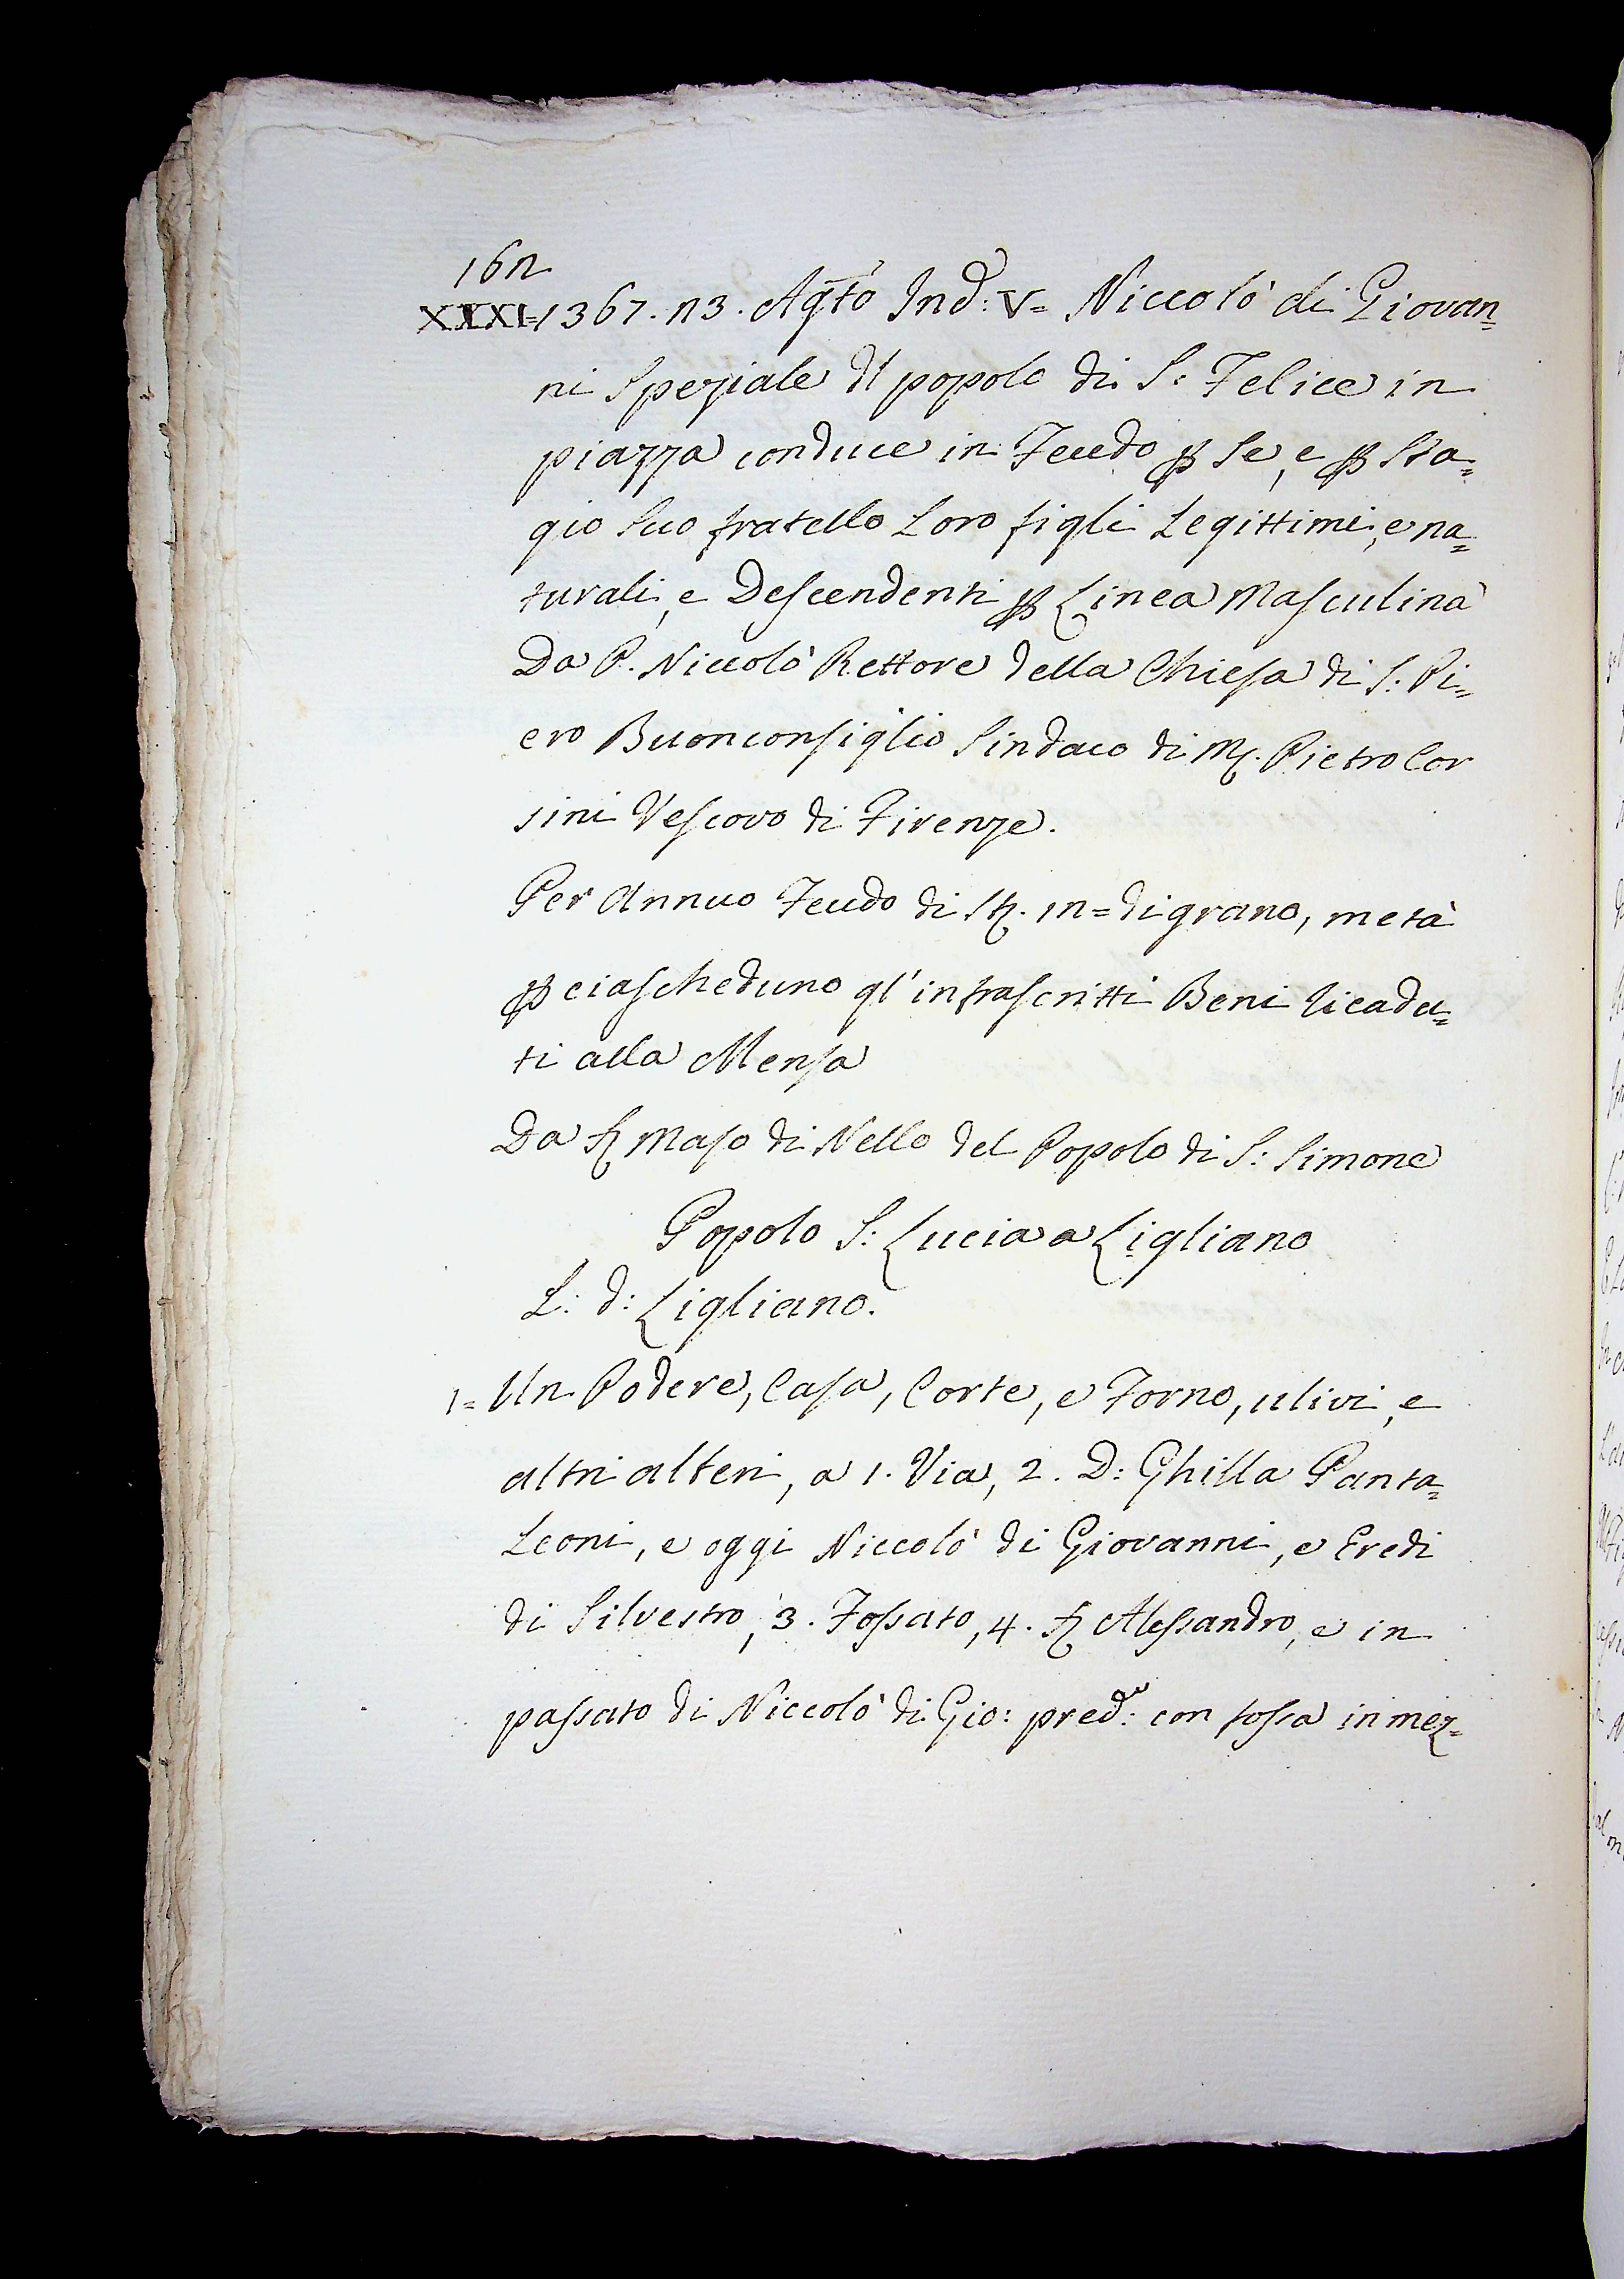 162
XXXI=1367. 23. Ag̃to Ind: V= Niccolò di Giovan=
ni Speziale dl popolo di S: Felice in
piazza conduce in Feudo ꝑ Se, e ꝑ Sta=
gio Suo fratello Loro figli Legittimi, e na=
turali, e Descendenti ꝑ Linea Masculina
Da P. Niccolò Rettore della Chiesa di S: Pi=
ero Buonconsiglio Sindaco di M. Pietro Cor
sini Vescovo di Firenze.
Per Annuo Feudo di St. 12= di grano, metà
ꝑ ciascheduno gl'infrascritti Beni ricadu=
ti alla Mensa
Da Maso di Nello del Popolo di S: Simone
Popolo S: Lucia a Ligliano
L: d: Ligliano.
1= Un Podere, Casa, Corte, e Forno, ulivi, e
altri alberi, a 1. Via, 2. D: Ghilla Panta=
Leoni, e oggi Niccolò di Giovanni, e Eredi
di Silvestro, 3. Fossato, 4. Alessandro, e in
passato di Niccolò di Gio: pred: con fossa in mez=